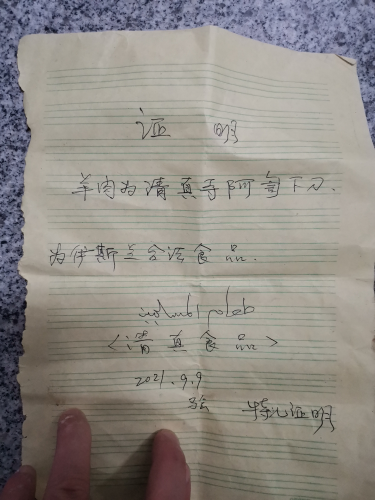 证 明
羊肉为清真寺阿訇下刀.
为伊斯兰合法食品.
<清真食品>
2021.9.9
特此证明